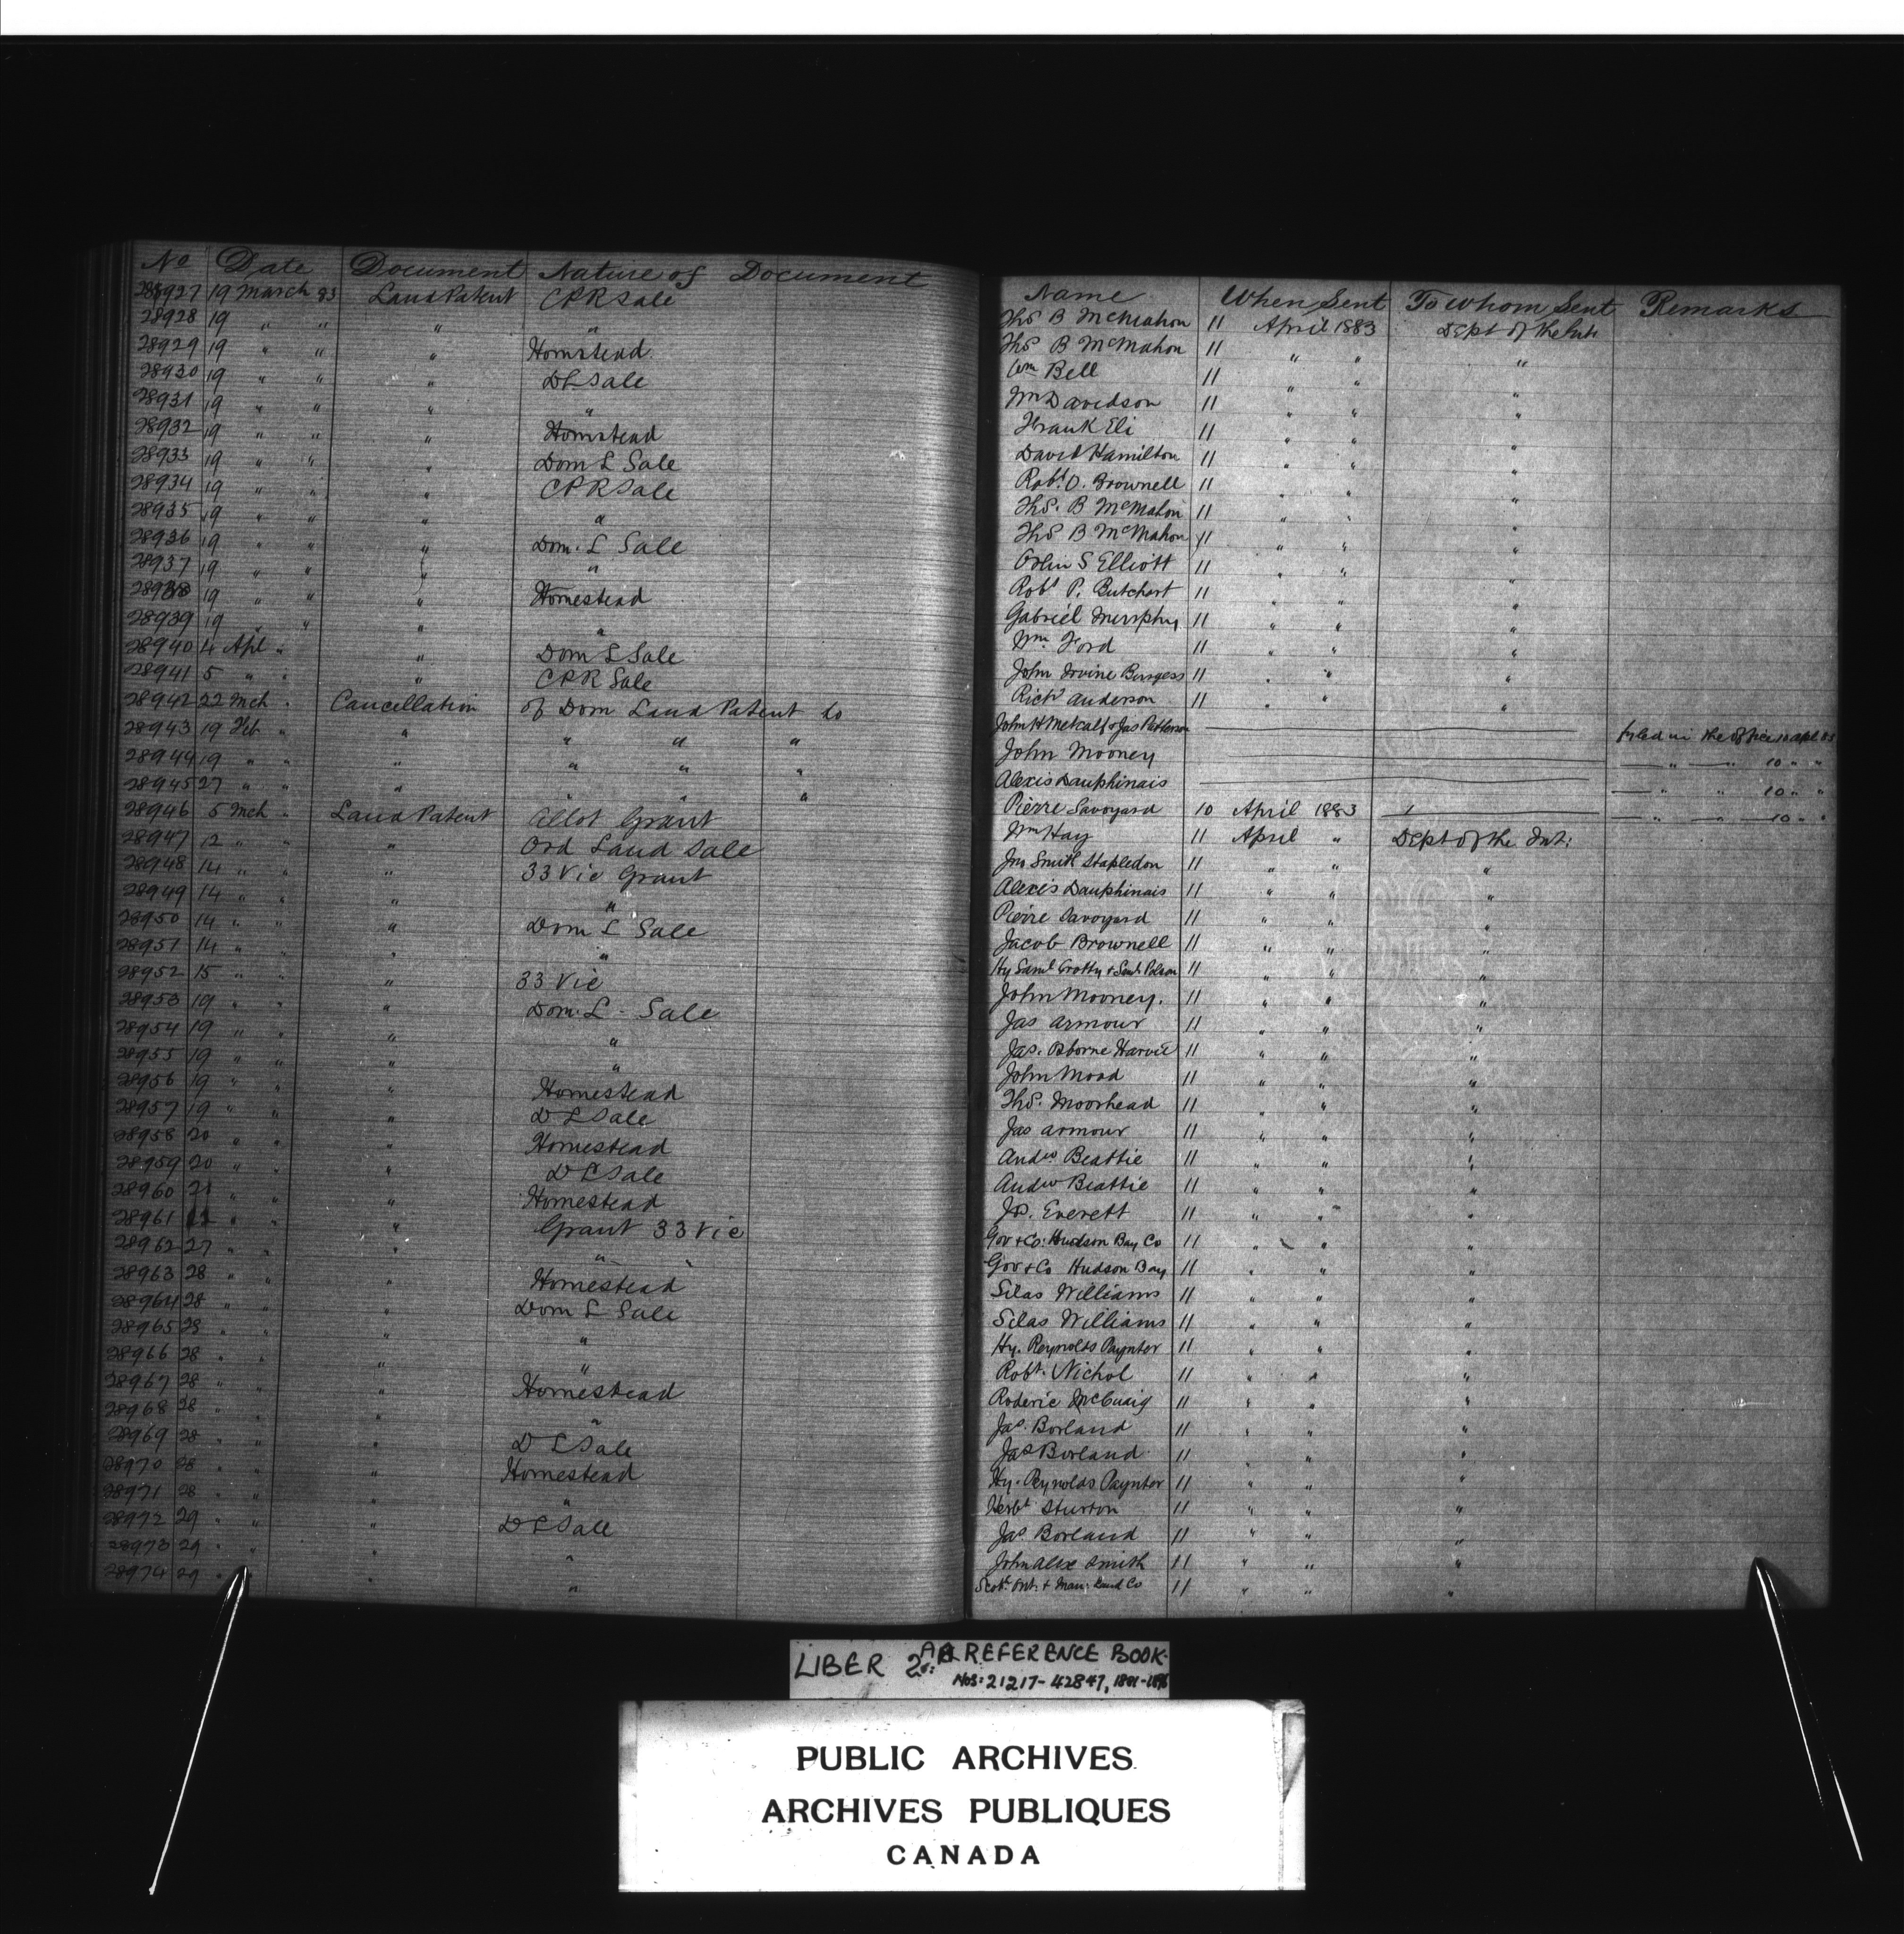 No Date Document Nature of Document
28927 19 March 83 Land Patent CPR Sale
28928 19 " " " "
28929 19 " " " Homstead
28930 19 " " " DL Sale
28931 19 " " " "
28932 19 " " " Homstead
28933 19 " " " Dom L Sale
28934 19 " " " CPR Sale
28935 19 " " " "
28936 19 " " " Dom. L Sale
28937 19 " " " "
28938 19 " " " Homestead
28939 19 " " " "
28940 4 Apl " " Dom L Sale
28941 5 " " " CPR Sale
28942 22 Mch " Cancellation of Dom Land Patent to
28943 19 Feb " " " " "
28944 19 " " " " " "
28945 27 " " " " " "
28946 5 Mch " Land Patent Allot Grant
28947 12 " " " Ord Land Sale
28948 14 " " " 33 Vic Grant
28949 14 " " " "
28950 14 " " " Dom L Sale
28951 14 " " " "
28952 15 " " " 33 Vic
28953 19 " " " Dom. L. Sale
28954 19 " " " "
28955 19 " " " "
28956 19 " " " Homestead
28957 19 " " " D L Sale
28958 20 " " " Homestead
28959 20 " " " D L Sale
28960 21 " " " Homestead
28961 " " " Grant 33 Vic
28962 27 " " " "
28963 28 " " " Homestead
28964 28 " " " Dom L Sale
28965 28 " " " "
28966 28 " " " "
28967 28 " " " Homestead
28968 28 " " " "
28969 28 " " " D L Sale
28970 28 " " " Homestead
28971 28 " " " "
28972 29 " " " D L Sale
28973 29 " " " "
28974 29 " " " "
Name When Sent To Whom Sent Remarks
Ths B McMahon 11 April 1883 Dept of the Int
Ths B McMahon 11 " " "
Wm Bell 11 " " "
Wm Davidson 11 " " "
Frank Eli 11 " " "
David Hamilton 11 " " "
Robt O. Brownell 11 " " "
Ths. B McMahon 11 " " "
Ths B McMahon 11 " " "
Orlin S Elliott 11 " " "
Robt P. Butchart 11 " " "
Gabriel Murphy 11 " " "
Wm Ford 11 " " "
John Irvine Burgess 11 " " "
Richd Anderson 11 " " "
John H Metcalf & Jas Patterson filed in the office 10 Apl 83
John Mooney " " 10 " "
Alexis Dauphinais " " 10 " "
Pierre Savoyard 10 April 1883 " " 10 " "
Wm Hay 11 April " Dept of the Int.
Jno Smith Stapledon 11 " " "
Alexis Dauphinais 11 " " "
Pierre Savoyard 11 " " "
Jacob Brownell 11 " " "
Hy Saml Crotty & Saml Polson 11 " " "
John Mooney. 11 " " "
Jas Armour 11 " " "
Jas. Harvie 11 " " "
John Mood 11 " " "
Ths. Moorhead 11 " " "
Jas Armour 11 " " "
Andw Beattie 11 " " "
Andw Beattie 11 " " "
Jos. Everett 11 " " "
Gov & Co. Hudson Bay Co 11 " " "
Gov & Co Hudson Bay 11 " " "
Silas Williams 11 " " "
Silas Williams 11 " " "
Hy. Reynolds Paynter 11 " " "
Robt. Nichol 11 " " "
Roderic McCuaig 11 " " "
Jas. Borland 11 " " "
Jas Borland 11 " " "
Hy. Reynolds Paynter 11 " " "
Herbt Sturton 11 " " "
Jas Borland 11 " " "
John Alex Smith 11 " " "
Scoth Ont. & Man: Land Co 11 " " "
LIBER 2A: REFERENCE BOOK.
Nos: 21217-42847, 1881-1896
PUBLIC ARCHIVES
ARCHIVES PUBLIQUES
CANADA